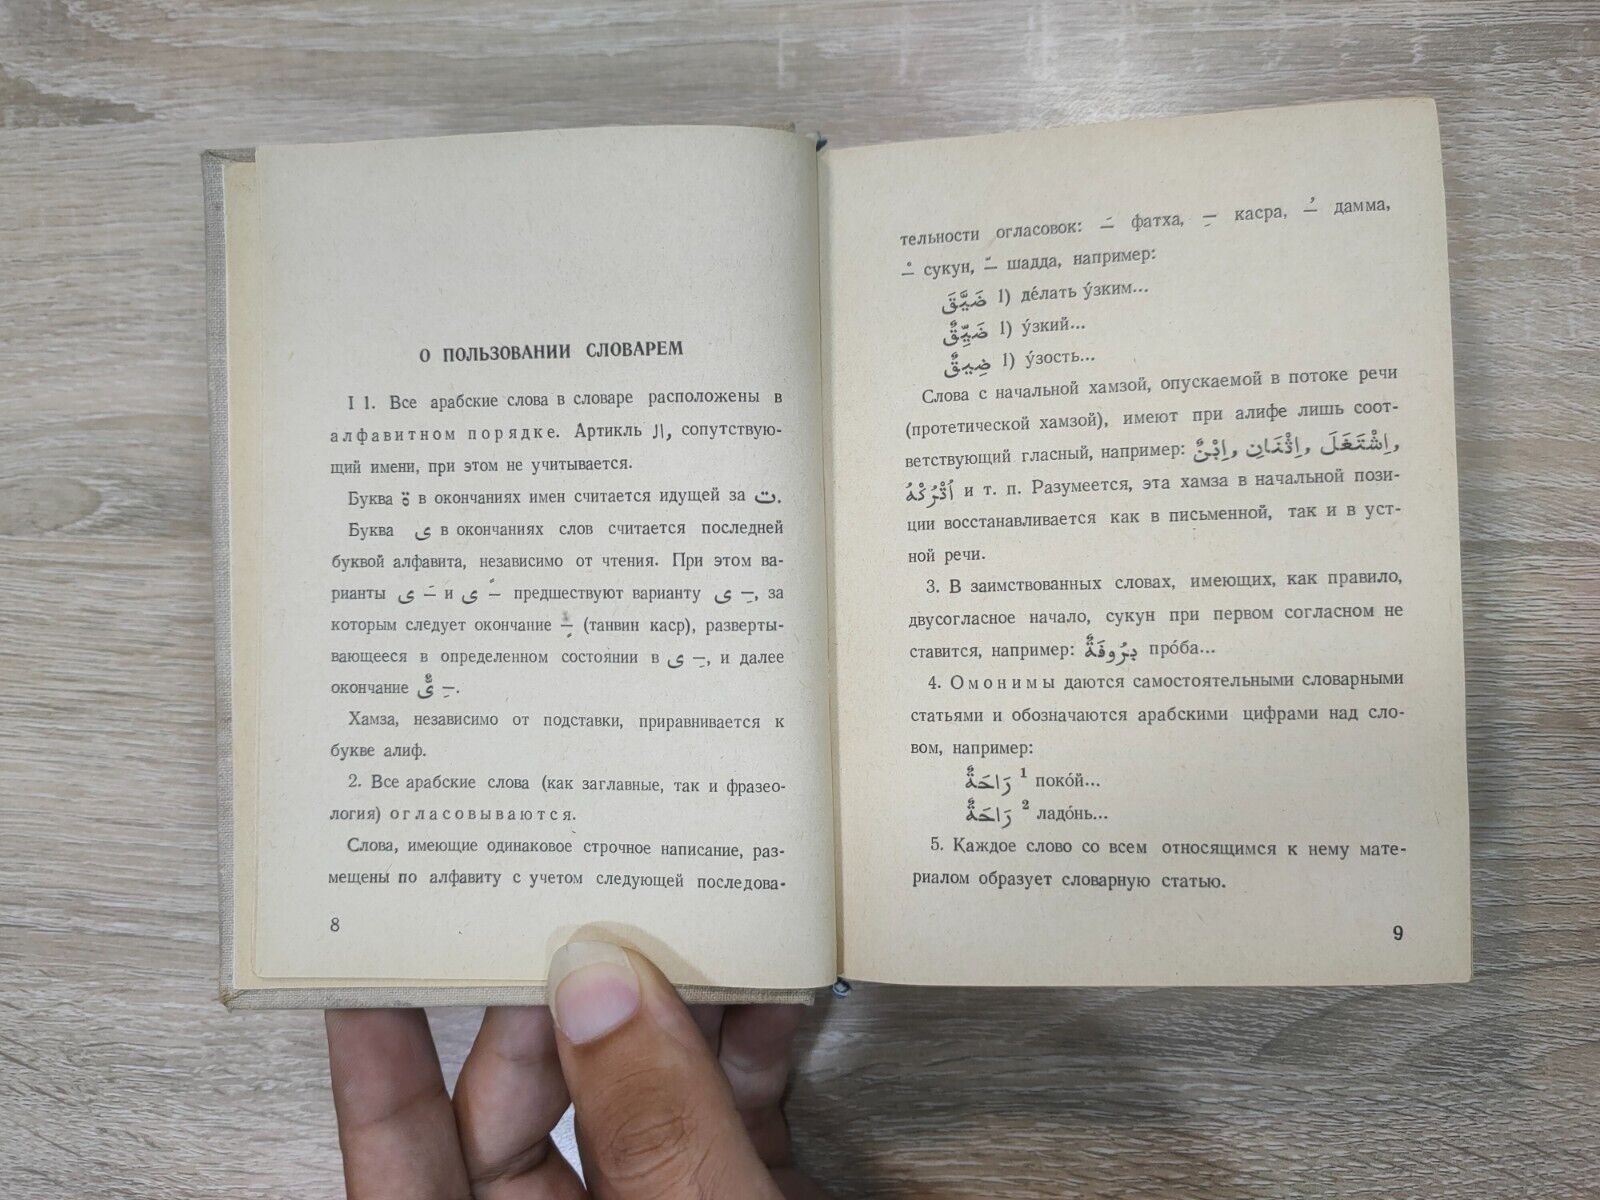 О ПОЛЬЗОВАНИИ СЛОВАРЕМ
I 1. Все арабские слова в словаре расположены в
алфавитном порядке. Артикль ال, сопутствую-
щий имени, при этом не учитывается.
Буква ة в окончаниях имен считается идущей за ت.
Буква ى в окончаниях слов считается последней
буквой алфавита, независимо от чтения. При этом ва-
рианты ـَ ى и ـً ى предшествуют варианту ـِ ى, за
которым следует окончание ـٍ (танвин каср), разверты-
вающееся в определенном состоянии в ـِ ى, и далее
окончание ـِ ىٌّ.
Хамза, независимо от подставки, приравнивается к
букве алиф.
2. Все арабские слова (как заглавные, так и фразео-
логия) огласовываются.
Слова, имеющие одинаковое строчное написание, раз-
мещены по алфавиту с учетом следующей последова-
8
тельности огласовок: ـَ фатха, ـِ касра, ـُ дамма,
ـْ сукун, ـّ шадда, например:
ضَيَّقَ 1) де́лать у́зким...
ضَيِّقٌ 1) у́зкий...
ضِيقٌ 1) у́зость...
Слова с начальной хамзой, опускаемой в потоке речи
(протетической хамзой), имеют при алифе лишь соот-
ветствующий гласный, например: اِشْتَغَلَ, اِثْنَانِ, اِبْنٌ,
اُتْرُكْهُ и т. п. Разумеется, эта хамза в начальной пози-
ции восстанавливается как в письменной, так и в уст-
ной речи.
3. В заимствованных словах, имеющих, как правило,
двусогласное начало, сукун при первом согласном не
ставится, например: برُوفَةٌ про́ба...
4. Омонимы даются самостоятельными словарными
статьями и обозначаются арабскими цифрами над сло-
вом, например:
رَاحَةٌ ¹ поко́й...
رَاحَةٌ ² ладо́нь...
5. Каждое слово со всем относящимся к нему мате-
риалом образует словарную статью.
9